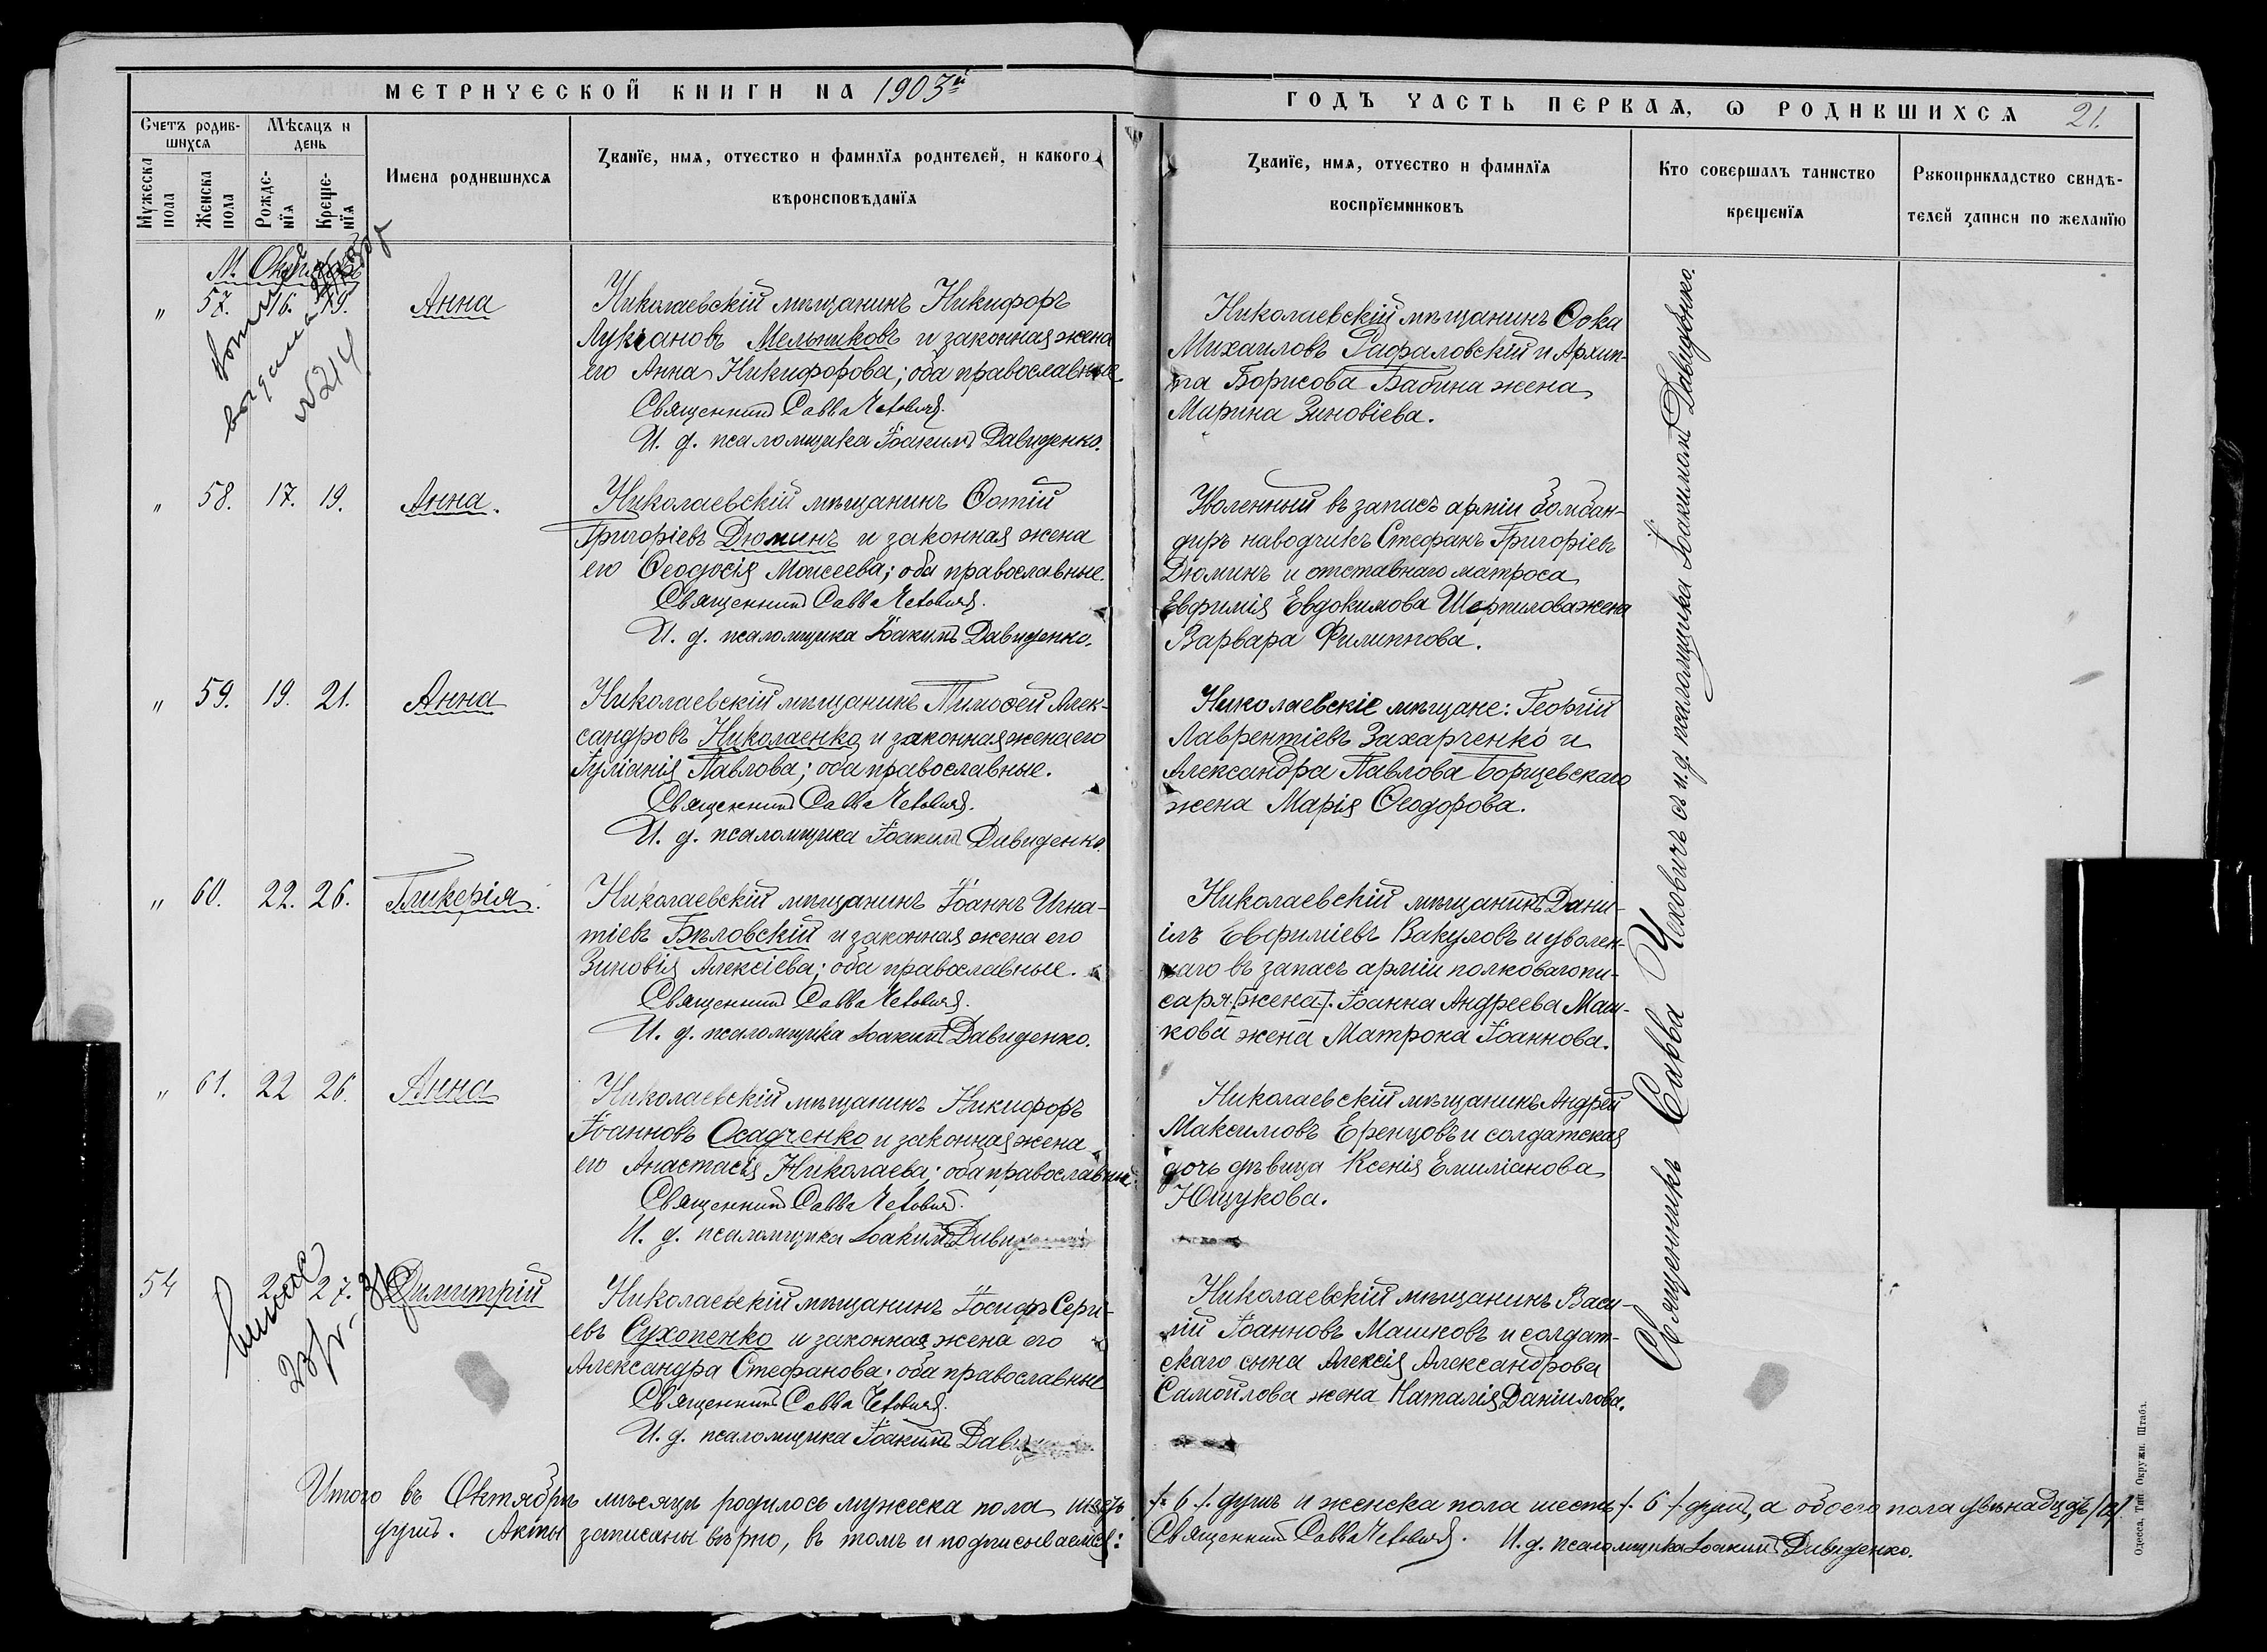 МЕТРИЧЕСКОЙ КНИГИ НА 1903й
Счетъ родив-
шихся
Мѣсяцъ и
день
Мужеска
пола
Женска
пола
Рожде-
нїя
Креще-
нїя
Имена родившихся
Званїе, имя, отчество и фамилїя родителей, и какого
вѣроисповѣданїя
М. Октябрь
" 57. 16. 19. Анна
Николаевскій мѣщанинъ Никифоръ
Лукіановъ Мельниковъ и законная жена
его Анна Никифорова; оба православные
Священникъ Савва Чеховичъ.
И. д. псаломщика Іоакимъ Давиденко.
выдана
№ 214
" 58. 17. 19. Анна.
Николаевскій мѣщанинъ Ѳотій
Григоріевъ Дюминъ и законная жена
его Ѳеодосія Моисеева; оба православные.
Священникъ Савва Чеховичъ.
И. д. псаломщика Іоакимъ Давиденко.
" 59. 19. 21. Анна
Николаевскій мѣщанинъ Тимоѳей Алек-
сандровъ Николаенко и законная жена его
Іуліанія Павлова; оба православные.
Священникъ Савва Чеховичъ.
И. д. псаломщика Іоакимъ Давиденко.
" 60. 22. 26. Гликерія.
Николаевскій мѣщанинъ Іоаннъ Игна-
тіевъ Бѣловскій и законная жена его
Зиновія Алексіева; оба православные.
Священникъ Савва Чеховичъ.
И. д. псаломщика Іоакимъ Давиденко.
" 61. 22 26. Анна
Николаевскій мѣщанинъ Никифоръ
Іоанновъ Осадченко и законная жена
его Анастасія Николаева; оба православные.
Священникъ Савва Чеховичъ.
И. д. псаломщика Іоакимъ Давиденко
54 27. Димитрій
Николаевскій мѣщанинъ Іосифъ Серги-
евъ Сухопенко и законная жена его
Александра Стефанова; оба православные
Священникъ Савва Чеховичъ.
И. д. псаломщика Іоакимъ Давиденко
Итого въ Октябрѣ мѣсяцѣ родилось мужеска пола шесть
душъ. Акты записаны вѣрно, въ томъ и подписываемся:
ГОДЪ ЧАСТЬ ПЕРВАЯ, Ѡ РОДИВШИХСЯ 21.
Званїе, имя, отчество и фамилїя
воспрїемниковъ
Кто совершалъ таинство
крещенїя
Рукоприкладство свидѣ-
телей записи по желанїю
Николаевскій мѣщанинъ Ѳока
Михаиловъ Рафаловскій и Архип-
па Борисова Бабина жена
Марина Зиновіева.
Уволенный въ запасъ арміи бомбан-
диръ наводчикъ Стефанъ Григоріевъ
Дюминъ и отставнаго матроса
Евфимія Евдокимова Шерпилова жена
Варвара Филиппова.
Николаевскіе мѣщане: Георгій
Лаврентіевъ Захарченко и
Александра Павлова Борщевскаго
жена Марія Ѳеодорова.
Николаевскій мѣщанинъ Дани-
ілъ Евфиміевъ Вакуловъ и уволен-
наго въ запасъ арміи полковаго пи-
саря [жена]. Іоанна Андреева Маш-
кова жена Матрона Іоаннова.
Николаевскій мѣщанинъ Андрей
Максимовъ Еренцовъ и солдатская
дочь дѣвица Ксенія Емиліанова
Ющукова.
Николаевскій мѣщанинъ Васи-
лій Іоанновъ Машковъ и солдат-
скаго сына Алексія Александрова
Самойлова жена Наталія Даніилова.
Священникъ Савва Чеховичъ съ и. д. псаломщика Іоакимомъ Давиденко.
/. 6 /. душъ и женска пола шесть /. 6 /. душъ, а обоего пола двѣнадцать /12/.
Священникъ Савва Чеховичъ. И. д. псаломщика Іоакимъ Давиденко.
Одесса, Тип. Окружн. Штаба.